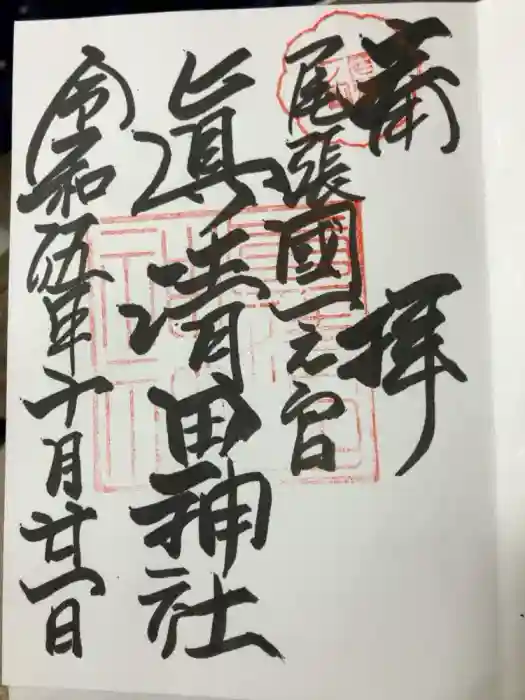 奉拝
尾張國一之宮
眞清田神社
令和伍年十月廿一日